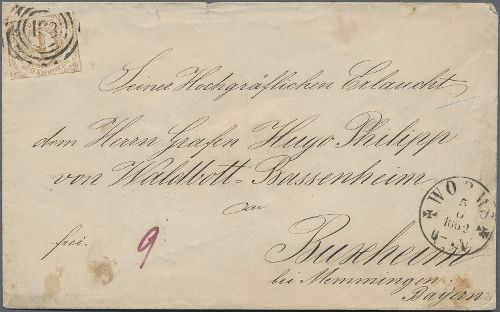 9 Kreuzer
Seiner Hochgräflichen Erlaucht
dem Herrn Grafen Hugo Philipp
von Waldbott-Bassenheim
zu
WORMS
5
6
1862
frei.
9
Buxheim
bei Memmingen
Bayern